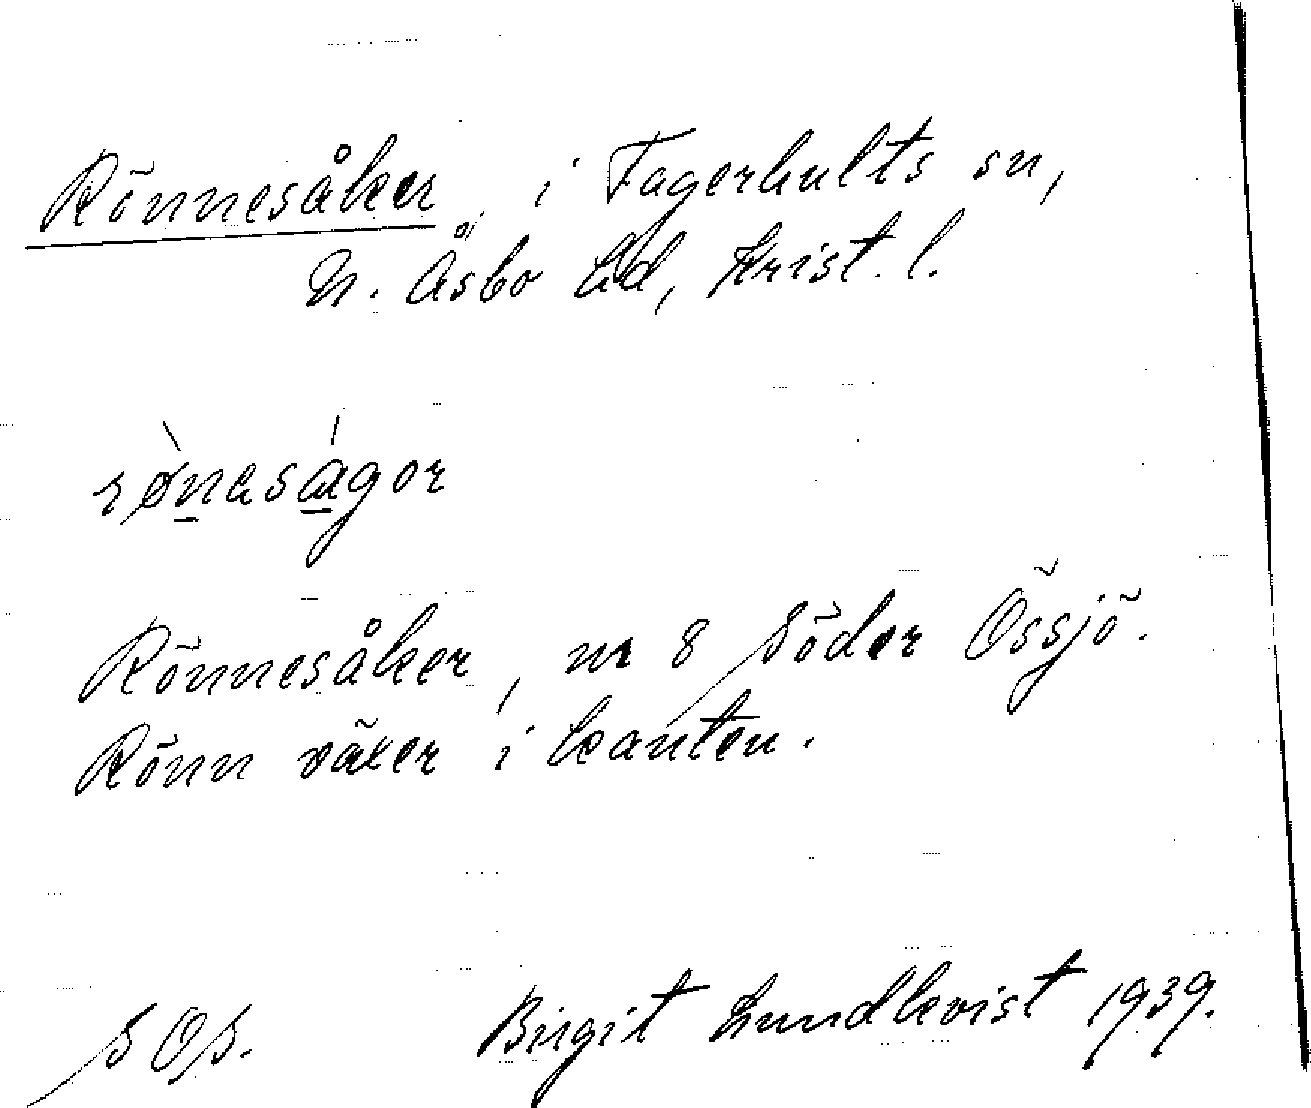 Rönnesåker i Fagerhults sn,
N. Åsbo hd, Krist. l.
rø̀neságor
Rönnesåker, nr 8 Söder Össjö.
Rönn växer i kanten.
SOÖ.
Birgit Lundkvist 1939.